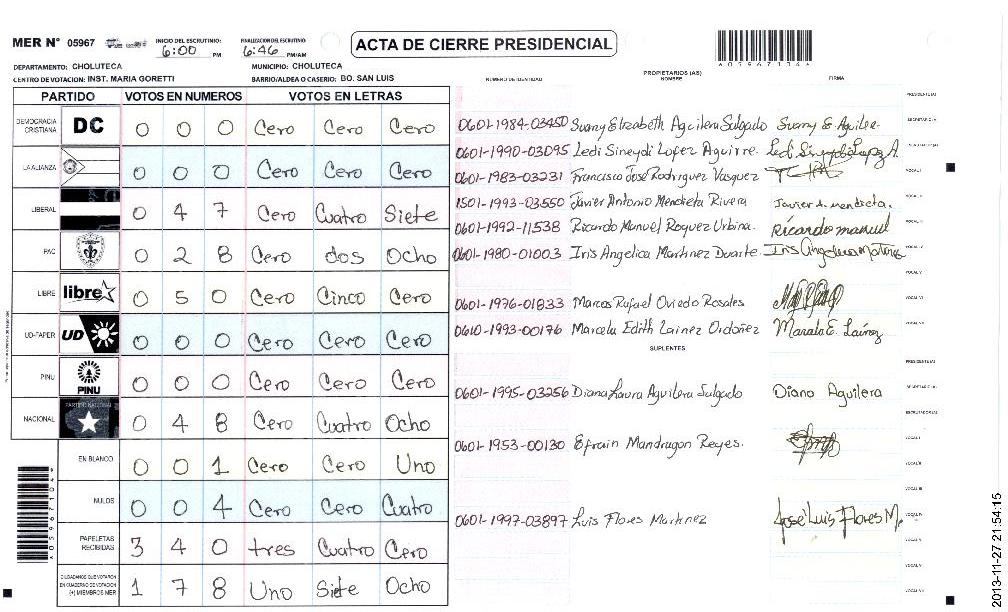 MER Nº 05967
INICIO DEL ESCRUTINIO: 6:00 PM
FINALIZACION DEL ESCRUTINIO: 6:46 PM/AM
ACTA DE CIERRE PRESIDENCIAL
4059671046
DEPARTAMENTO: CHOLUTECA
MUNICIPIO: CHOLUTECA
CENTRO DE VOTACION: INST. MARIA GORETTI
BARRIO/ALDEA O CASERIO: BO. SAN LUIS
PARTIDO VOTOS EN NUMEROS VOTOS EN LETRAS
DEMOCRACIA CRISTIANA DC 0 0 0 Cero Cero Cero
LA ALIANZA 0 0 0 Cero Cero Cero
LIBERAL 0 4 7 Cero Cuatro Siete
PAC 0 2 8 Cero dos Ocho
LIBRE libre 0 5 0 Cero Cinco Cero
UD-FAPER UD 0 0 0 Cero Cero Cero
PINU PINU 0 0 0 Cero Cero Cero
NACIONAL PARTIDO NACIONAL 0 4 8 Cero Cuatro Ocho
EN BLANCO 0 0 1 Cero Cero Uno
NULOS 0 0 4 Cero Cero Cuatro
PAPELETAS RECIBIDAS 3 4 0 tres Cuatro Cero
CIUDADANOS QUE VOTARON EN CUADERNO DE VOTACION (+) MIEMBROS MER 1 7 8 Uno Siete Ocho
NUMERO DE IDENTIDAD PROPIETARIOS (AS) NOMBRE FIRMA
PRESIDENTE(A)
0601-1984-03450 Suany Elizabeth Aguilera Salgado Suany E. Aguilera SECRETARIO(A)
0601-1990-03095 Ledi Sineydi Lopez Aguirre. Ledi Sineydi Lopez A.
0601-1983-03231 Francisco José Rodriguez Vasquez VOCAL I
1501-1993-03550 Javier Antonio Mendieta Rivera Javier A. mendieta.
0601-1992-11538 Ricardo Manuel Roquez Urbina. Ricardo manuel
0601-1980-01003 Iris Angelica Martinez Duarte Iris Angelica Martinez
0601-1976-01833 Marcos Rafael Oviedo Rosales
0610-1993-00176 Marcela Edith Lainez Ordoñez Marcela E. Laínez
SUPLENTES
PRESIDENTE(A)
0601-1995-03256 Diana Laura Aguilera Salgado Diana Aguilera SECRETARIO(A)
ESCRUTADOR(A)
0601-1953-00130 Efrain Mandragon Reyes. VOCAL I
0601-1997-03897 Luis Flores Martinez José Luis Flores M.
2013-11-27 21:54:15